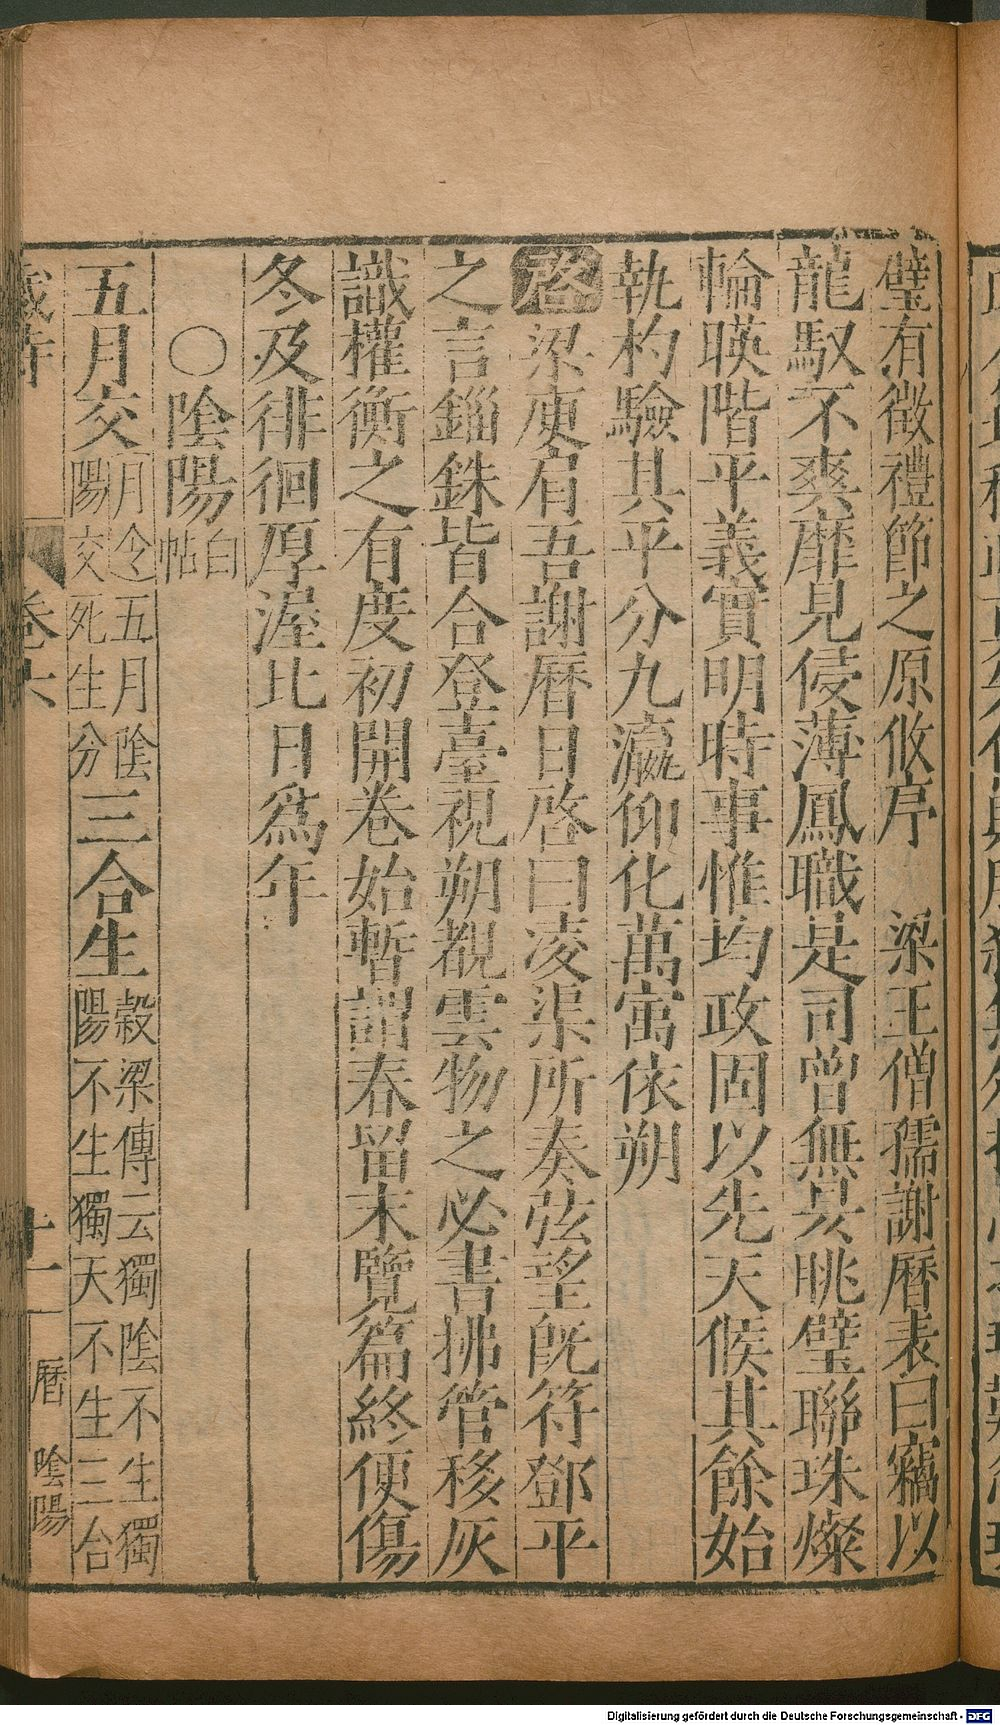 璧有徵禮節之原攸序　梁王僧孺謝曆表曰竊以
龍馭不爽靡見侵薄鳳職是司曾無昃眺璧聯珠燦
輪暎階平義實明時事惟均政固以先天候其餘始
執杓驗其平分九瀛仰化萬寓依朔
啓梁庾肩吾謝曆日啓曰凌渠所奏弦望旣符鄧平
之言錙銖皆合登臺視朔覩雲物之必書拂管移灰
識權衡之有度初開卷始暫謂春留末覽篇終便傷
冬及徘徊厚渥比日爲年
○陰陽白帖
五月交月令五月陰陽交死生分三合生穀梁傳云獨陰不生獨陽不生獨天不生三合
卷六
十一
曆　陰陽
Digitalisierung gefördert durch die Deutsche Forschungsgemeinschaft - DFG